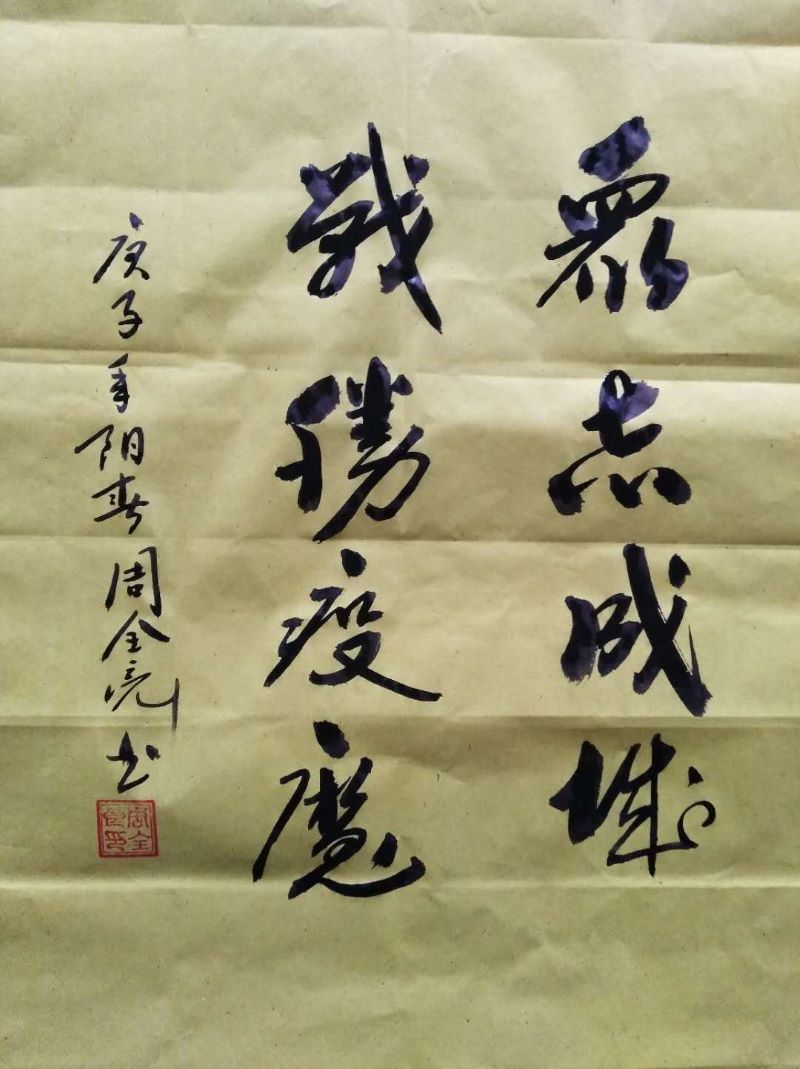 眾志成城
戰勝疫魔
庚子年阳春周全亮书
周全亮印